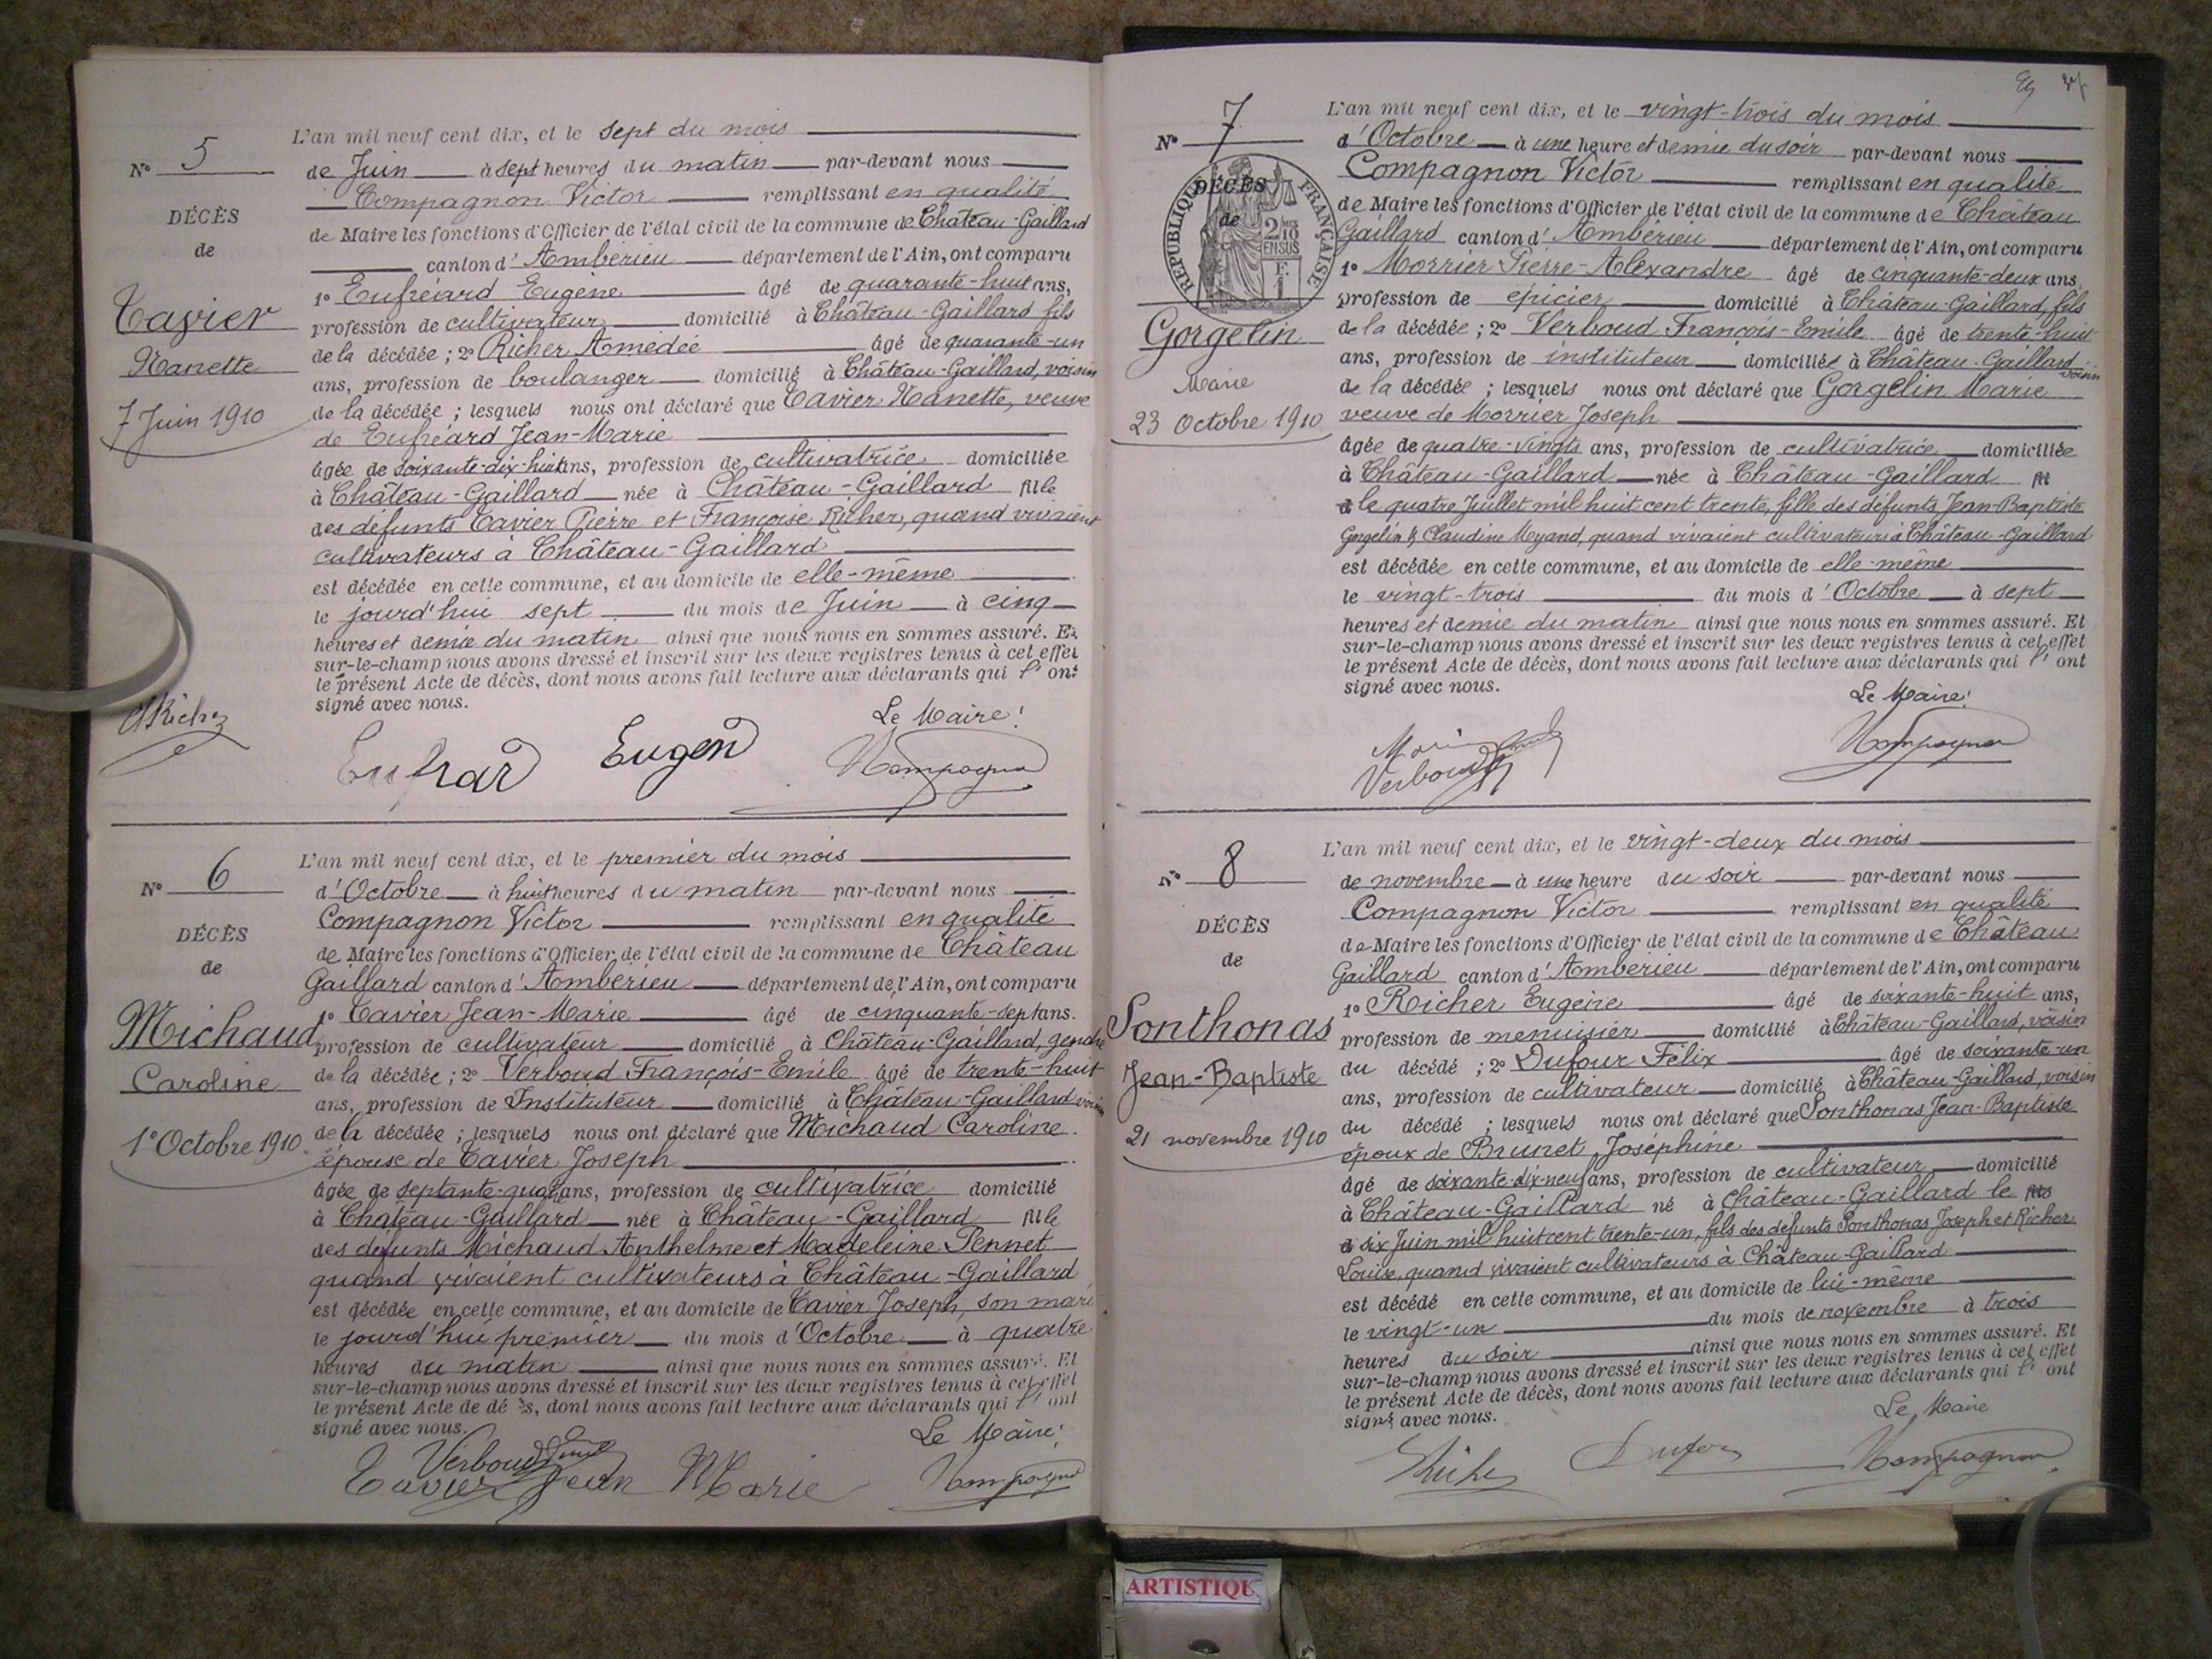 L'an mil neuf cent dix, et le sept du mois
N° 5
de Juin à sept heures du matin par-devant nous
Compagnon Victor remplissant en qualité
DÉCÈS
de Maire les fonctions d'Officier de l'état civil de la commune de Château-Gaillard
de
canton d'Ambérieu département de l'Ain, ont comparu
1° Eufréard Eugène âgé de quarante-huit ans,
Tavier
profession de cultivateur domicilié à Château-Gaillard fils
de la décédée ; 2° Richer Amédée âgé de quarante-un
Nanette
ans, profession de boulanger domicilié à Château-Gaillard, voisin
7 Juin 1910
de la décédée ; lesquels nous ont déclaré que Tavier Nanette, veuve
de Eufréard Jean-Marie
âgée de soixante-dix-huit ans, profession de cultivatrice domiciliée
à Château-Gaillard née à Château-Gaillard fille
des défunts Tavier Pierre et Françoise Richer, quand vivaient
cultivateurs à Château-Gaillard
est décédée en cette commune, et au domicile de elle-même
le jourd'hui sept du mois de Juin à cinq
heures et demie du matin ainsi que nous nous en sommes assuré. Et
sur-le-champ nous avons dressé et inscrit sur les deux registres tenus à cet effet
le présent Acte de décès, dont nous avons fait lecture aux déclarants qui l'ont
signé avec nous.
Le Maire :
ARicher
Eufrar Eugen VCompagnon
L'an mil neuf cent dix, et le premier du mois
N° 6
d'Octobre à huit heures du matin par-devant nous
Compagnon Victor remplissant en qualité
DÉCÈS
de Maire les fonctions d'Officier de l'état civil de la commune de Château
de
Gaillard canton d'Ambérieu département de l'Ain, ont comparu
1° Tavier Jean-Marie âgé de cinquante-sept ans.
Michaud
profession de cultivateur domicilié à Château-Gaillard, gendre
Caroline
de la décédée ; 2° Verboud François-Emile âgé de trente-huit
ans, profession de Instituteur domicilié à Château-Gaillard voisin
1er Octobre 1910.
de la décédée ; lesquels nous ont déclaré que Michaud Caroline.
épouse de Tavier Joseph
âgée de septante-quatre ans, profession de cultivatrice domicilié
à Château-Gaillard née à Château-Gaillard fille
des défunts Michaud Anthelme et Madeleine Pennet
quand vivaient cultivateurs à Château-Gaillard
est décédée en cette commune, et au domicile de Tavier Joseph, son mari
le jourd'hui premier du mois d'Octobre à quatre
heures du matin ainsi que nous nous en sommes assuré. Et
sur-le-champ nous avons dressé et inscrit sur les deux registres tenus à cet effet
le présent Acte de décès, dont nous avons fait lecture aux déclarants qui l'ont
signé avec nous.
Le Maire :
Verboud Emile
Tavier Jean Marie VCompagnon
L'an mil neuf cent dix, et le vingt-trois du mois
N° 7
d'Octobre à une heure et demie du soir par-devant nous
Compagnon Victor remplissant en qualité
DÉCÈS
RÉPUBLIQUE FRANÇAISE
2/10 EN SUS
de Maire les fonctions d'Officier de l'état civil de la commune de Château
de
Gaillard canton d'Ambérieu département de l'Ain, ont comparu
1° Morrier Pierre-Alexandre âgé de cinquante-deux ans,
profession de épicier domicilié à Château-Gaillard, fils
Gorgelin
de la décédée ; 2° Verboud François-Emile âgé de trente-huit
ans, profession de instituteur domiciliés à Château-Gaillard voisin
Marie
de la décédée ; lesquels nous ont déclaré que Gorgelin Marie
23 Octobre 1910
veuve de Morrier Joseph
âgée de quatre-vingts ans, profession de cultivatrice domiciliée
à Château-Gaillard née à Château-Gaillard
le quatre Juillet mil huit cent trente, fille des défunts Jean-Baptiste
Gorgelin & Claudine Moyand, quand vivaient cultivateurs à Château-Gaillard
est décédée en cette commune, et au domicile de elle-même
le vingt-trois du mois d'Octobre à sept
heures et demie du matin ainsi que nous nous en sommes assuré. Et
sur-le-champ nous avons dressé et inscrit sur les deux registres tenus à cet effet
le présent Acte de décès, dont nous avons fait lecture aux déclarants qui l'ont
signé avec nous.
Le Maire :
Verboud VCompagnon
L'an mil neuf cent dix, et le vingt-deux du mois
N° 8
de novembre à une heure du soir par-devant nous
Compagnon Victor remplissant en qualité
DÉCÈS
de Maire les fonctions d'Officier de l'état civil de la commune de Château
de
Gaillard canton d'Ambérieu département de l'Ain, ont comparu
1° Richer Eugène âgé de soixante-huit ans,
Sonthonas
profession de menuisier domicilié à Château-Gaillard, voisin
du décédé ; 2° Dufour Félix âgé de soixante-un
Jean-Baptiste
ans, profession de cultivateur domicilié à Château-Gaillard, voisin
21 novembre 1910
du décédé ; lesquels nous ont déclaré que Sonthonas Jean-Baptiste
époux de Brunet Joséphine
âgé de soixante-dix-neuf ans, profession de cultivateur domicilié
à Château-Gaillard né à Château-Gaillard le fils
six Juin mil huit cent trente-un, fils des défunts Sonthonas Joseph et Richer
Louise, quand vivaient cultivateurs à Château-Gaillard
est décédé en cette commune, et au domicile de lui-même
le vingt-un du mois de novembre à trois
heures du soir ainsi que nous nous en sommes assuré. Et
sur-le-champ nous avons dressé et inscrit sur les deux registres tenus à cet effet
le présent Acte de décès, dont nous avons fait lecture aux déclarants qui l'ont
signé avec nous.
Le Maire
Richer Dufour VCompagnon
ARTISTIQUE